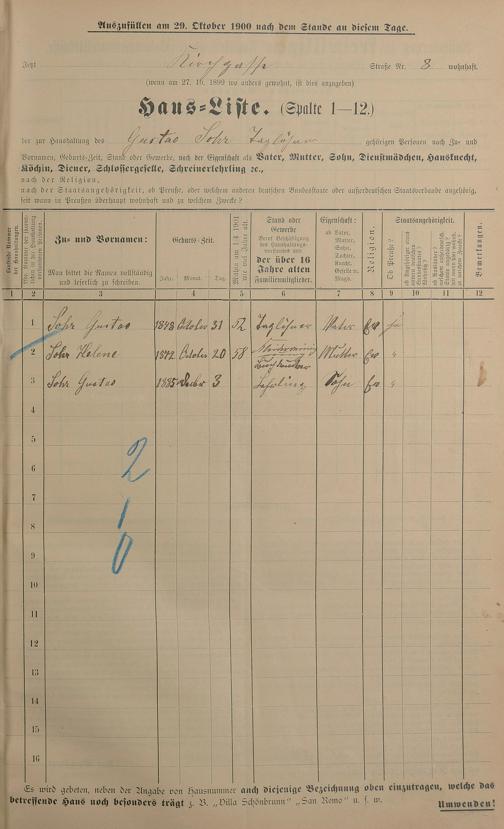 Auszufüllen am 29. Oktober 1900 nach dem Stande an diesem Tage.
Jetzt Kirchgasse Straße Nr. 8 wohnhaft.
(wenn am 27. 10. 1899 wo anders gewohnt, ist dies anzugeben)
Haus-Liste. (Spalte 1—12.)
der zur Haushaltung des Gustav Sohr Taglöhner gehörigen Personen nach Zu- und
Vornamen, Geburts-Zeit, Stand oder Gewerbe, nach der Eigenschaft als Vater, Mutter, Sohn, Dienstmädchen, Hausknecht,
Köchin, Diener, Schlossergeselle, Schreinerlehrling ec.,
nach der Religion,
nach der Staatsangehörigkeit, ob Preuße, oder welchem anderen deutschen Bundesstaate oder außerdeutschen Staatsverbande angehörig,
seit wann in Preußen überhaupt wohnhaft und zu welchem Zwecke?
Zu- und Vornamen:
Man bittet die Namen vollständig und leserlich zu schreiben.
Geburts-Zeit.
Jahr. Monat. Tag.
Stand oder Gewerbe
der über 16 Jahre alten Familienmitglieder.
Eigenschaft:
ob Vater, Mutter, Sohn, Tochter, Knecht, Geselle u. Magd.
Religion.
Staatsangehörigkeit.
Ob Preuße?
Bemerkungen.
1 2 3 4 5 6 7 8 9 10 11 12
1 Sohr Gustav October 31 52 Taglöhner Vater Ev ja
2 Sohr Helene October 20 58 Mutter Ev "
3 Sohr Gustav 1885 3 Lehrling Sohn Ev "
4
5
6
7
8
9
10
11
12
13
14
15
16
2
1
0
Es wird gebeten, neben der Angabe von Hausnummer auch diejenige Bezeichnung oben einzutragen, welche das
betreffende Haus noch besonders trägt z. B. „Villa Schönbrunn" „San Remo" u. s. w.
Umwenden!